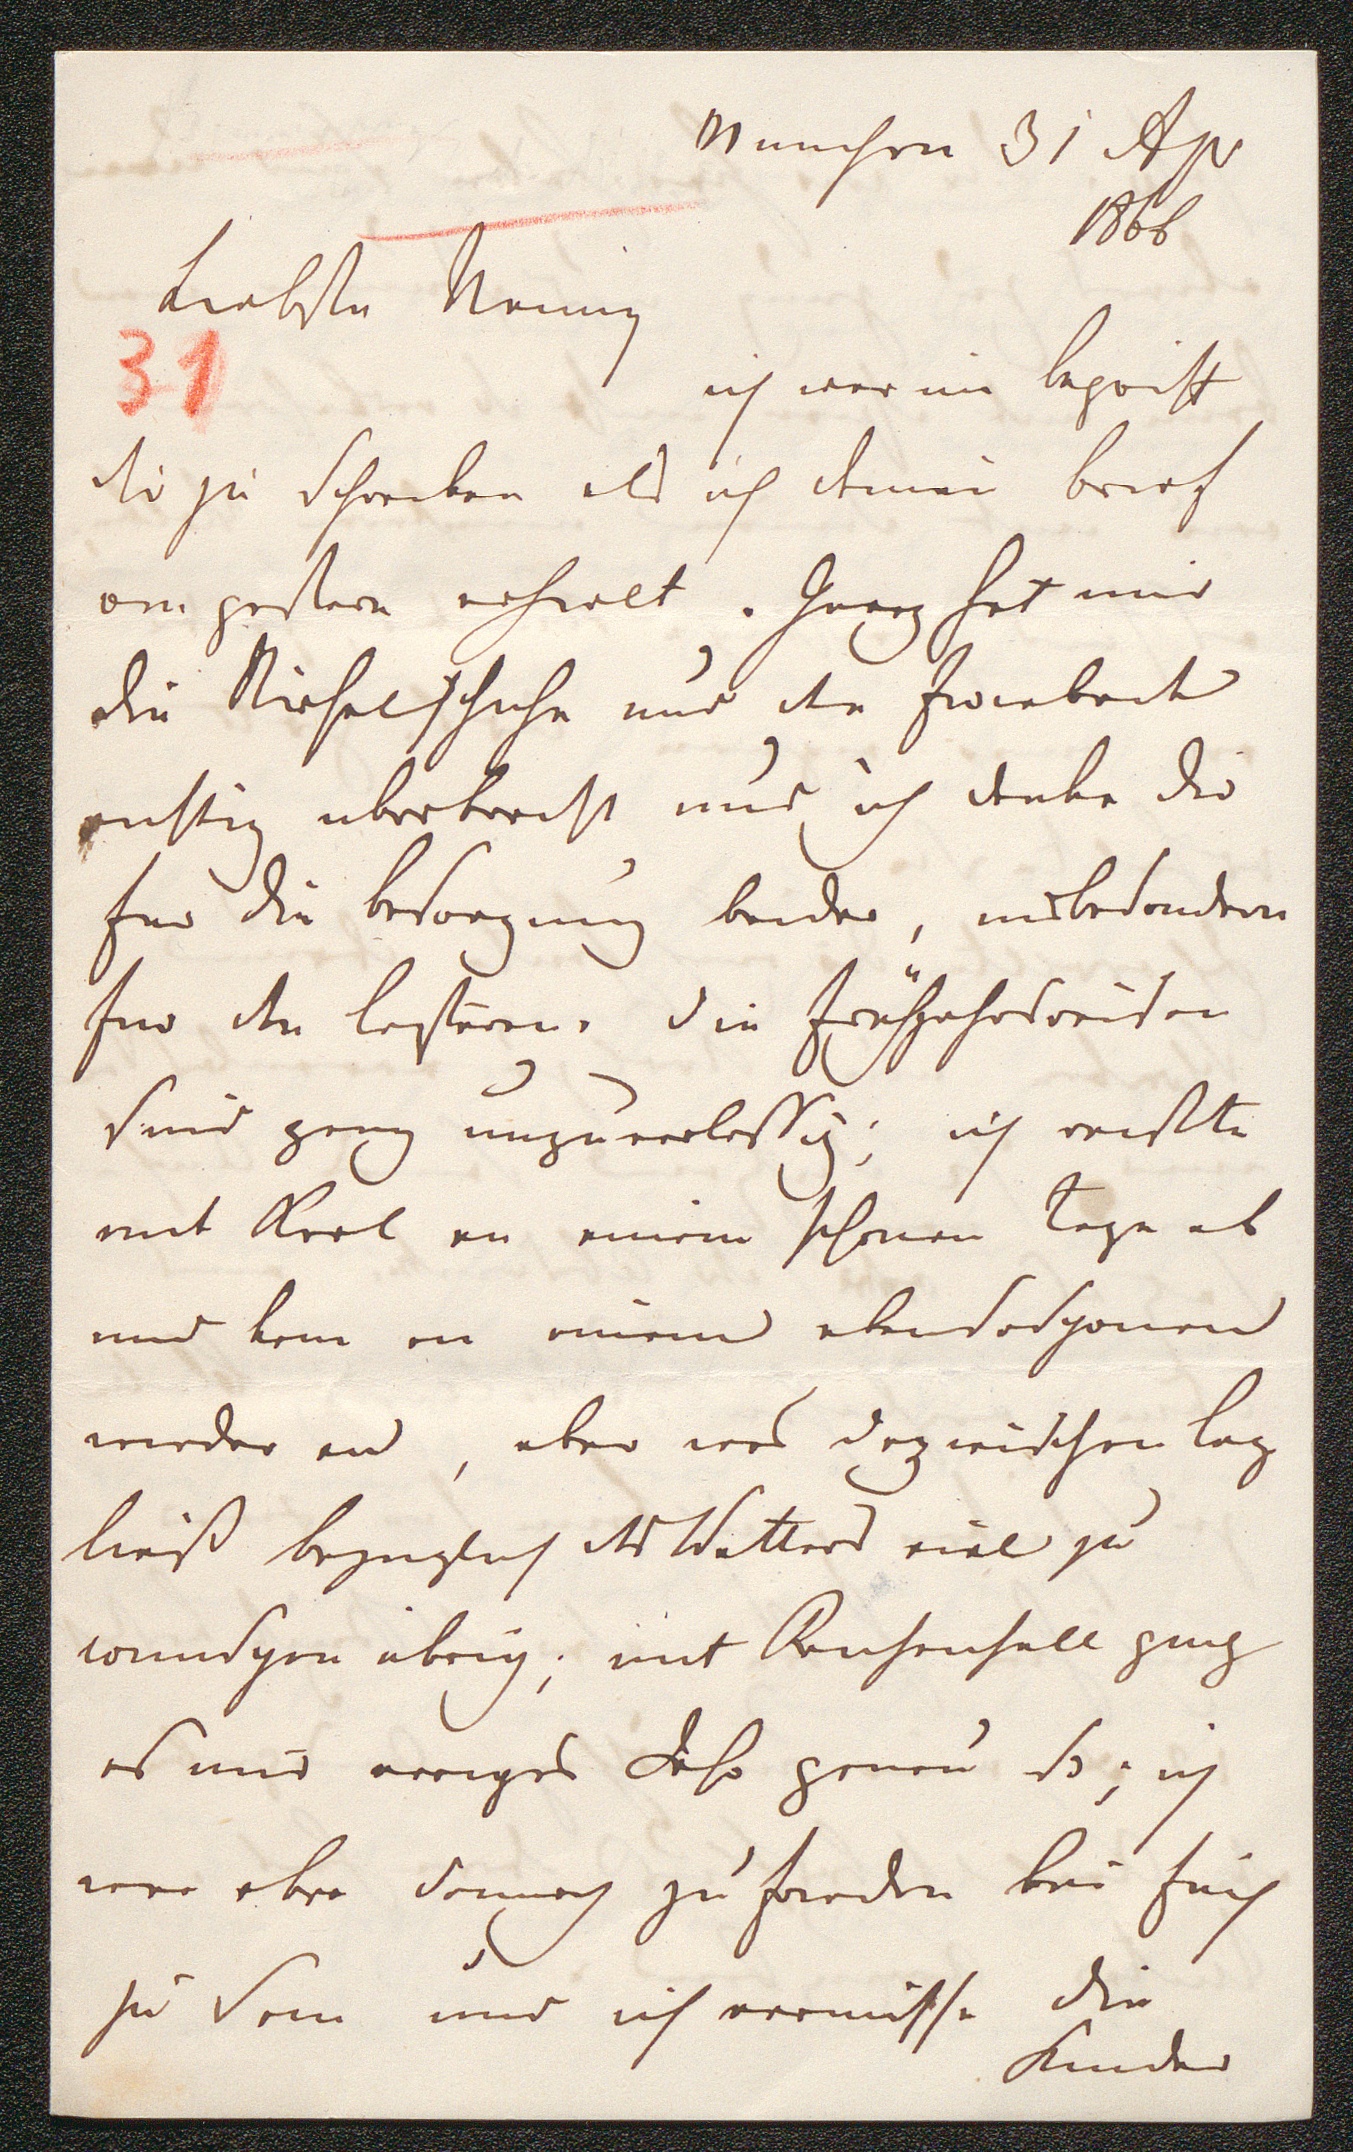 Munchen 31 Apr
1866
Liebste Nanny
31
ich war im begriff
dir zu schreiben als ich deinen brief
von gestern erhielt. Georg hat mir
die schuhe und den Zwieback
richtig uberbracht und ich danke dir
fur die besorgung beider, insbesondern
fur den lezteren. die Frühjahrsreisen
sind ganz unzuverlassig; ich reiste
mit Karl an einem schonen Tage ab
und kam an einem ebensoschonen
wieder an, aber was dazwischen lag
ließ bezuglich des Wetters viel zu
wunschen übrig; mit Reichenhall ging
es mir voriges Jahr genau so; ich
war aber dennoch zufrieden bei Euch
zu sein und ich vermisse die
Kinder